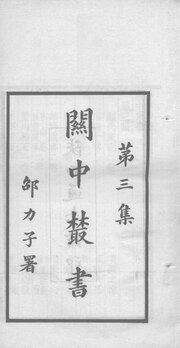 第三集
關中叢書
邵力子署